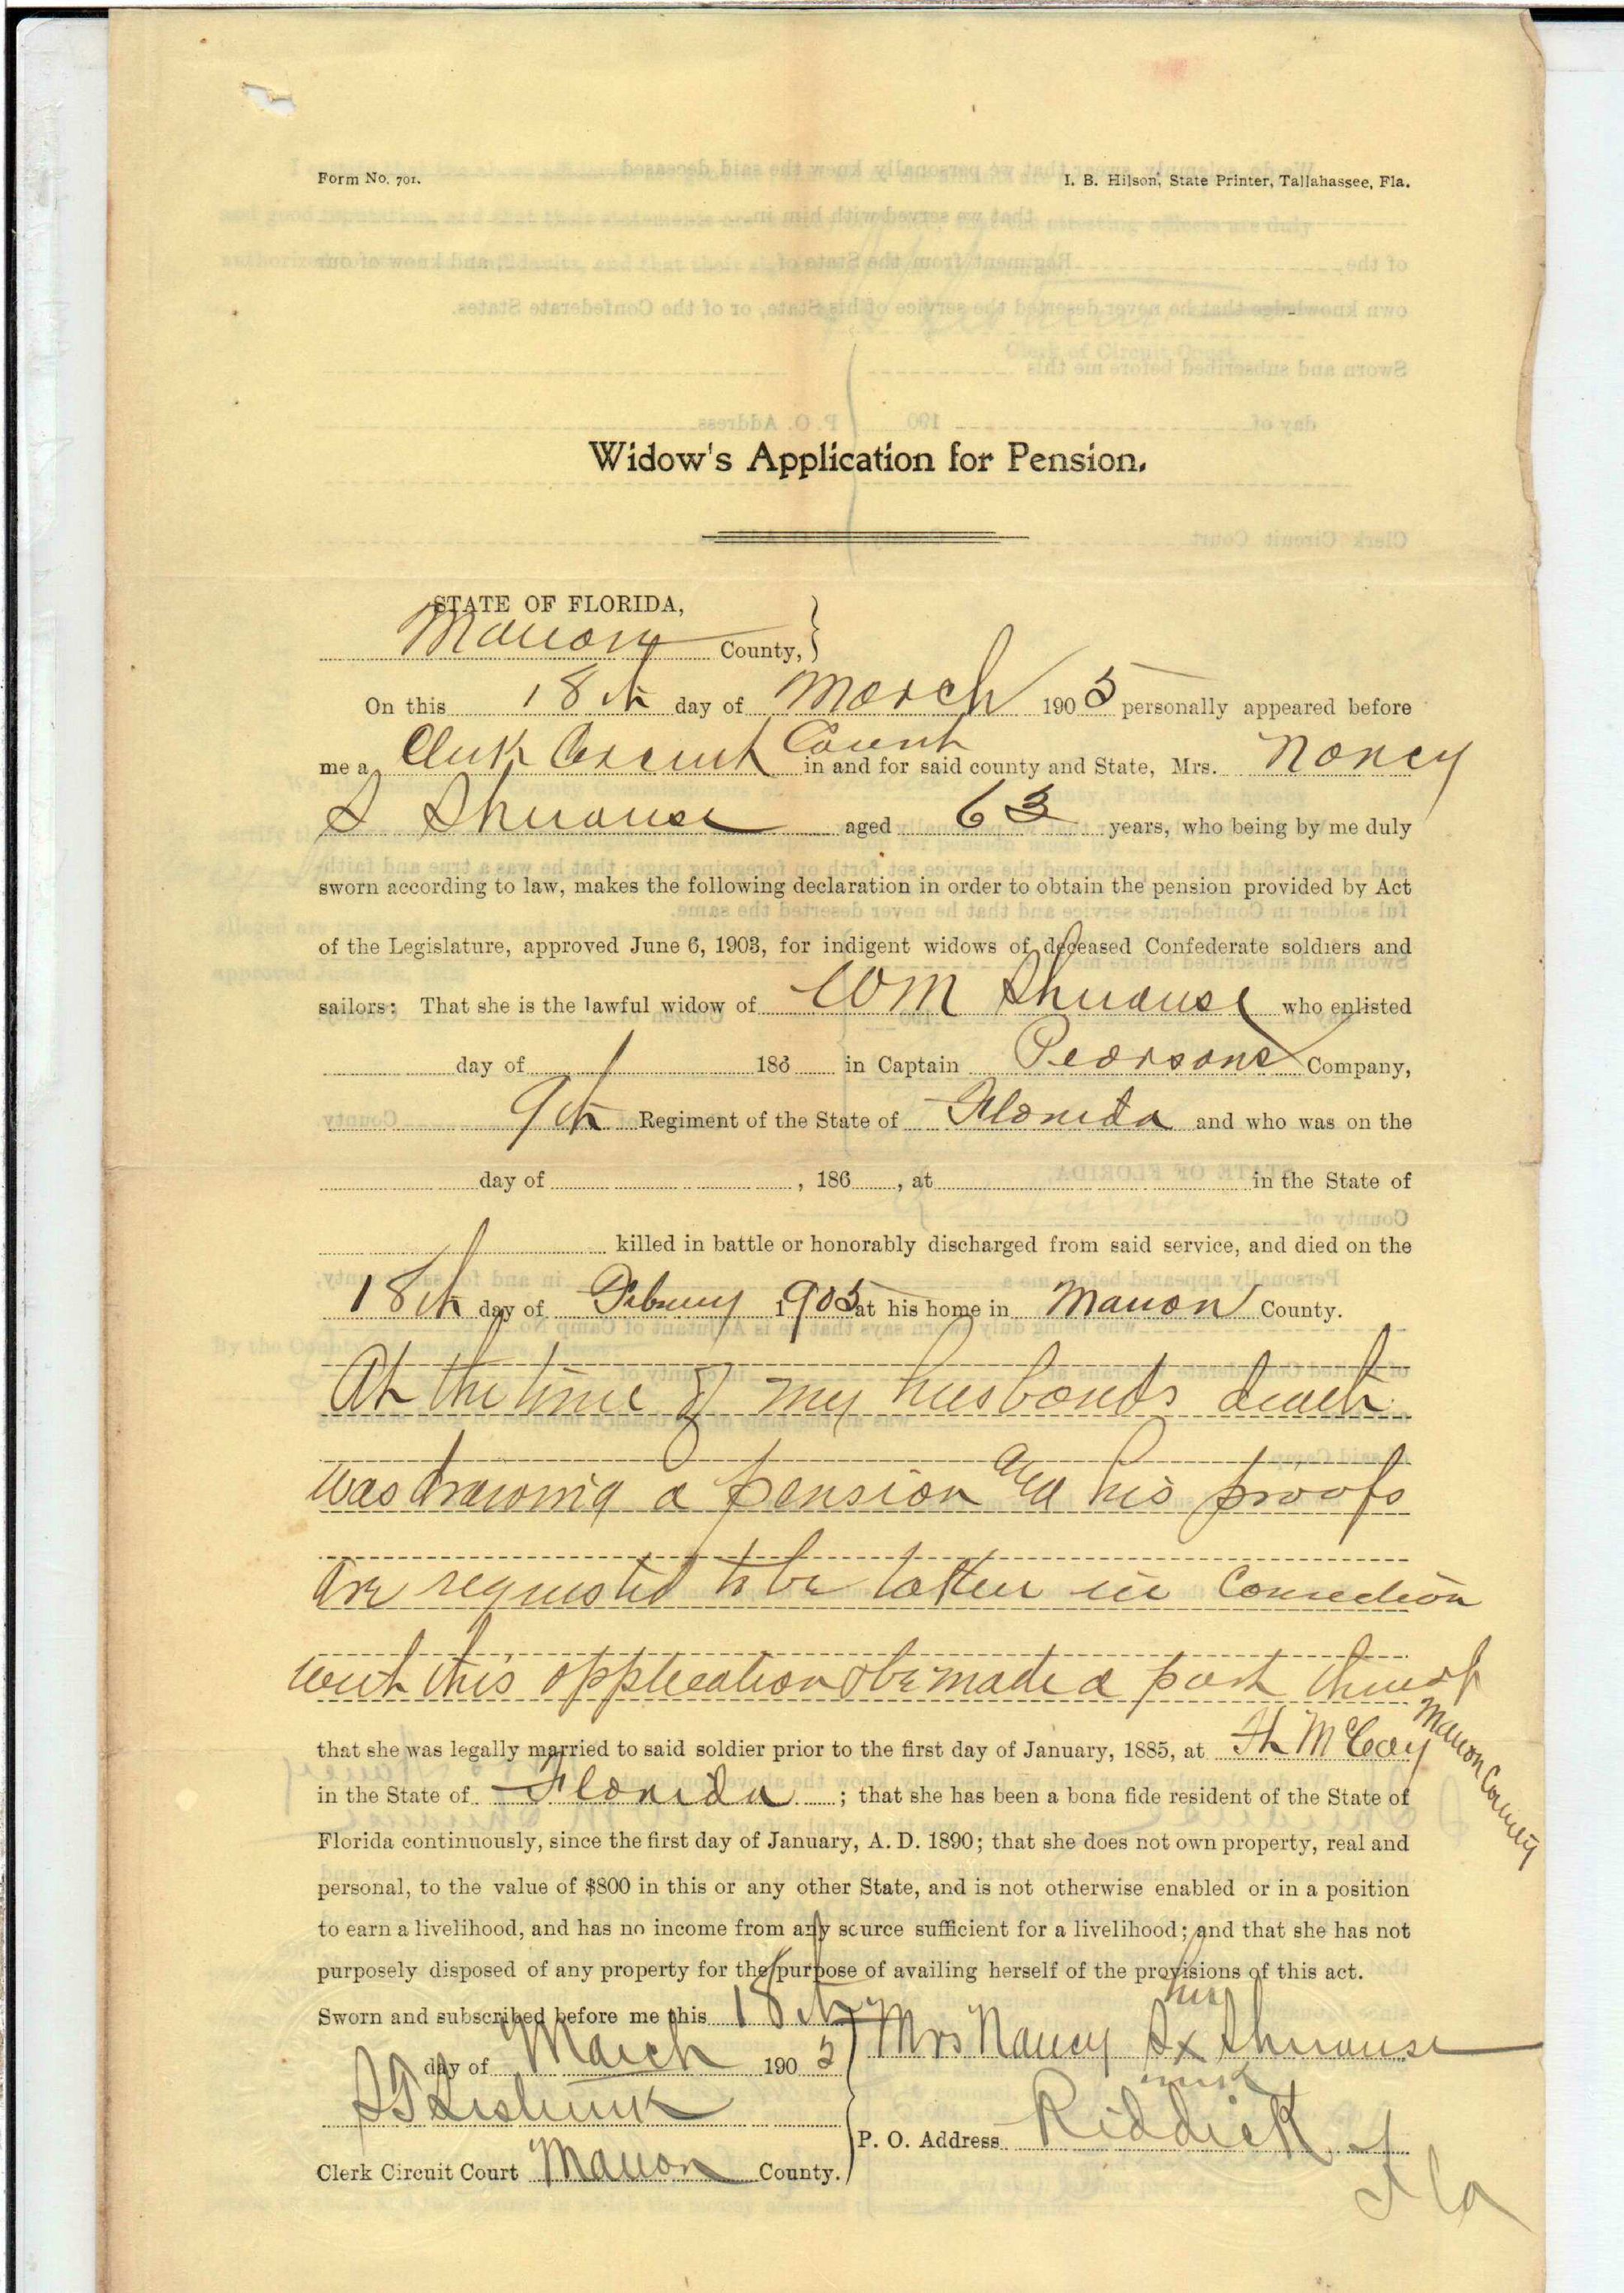 Form No. 701.
I. B. Hilson, State Printer, Tallahassee, Fla.
Widow's Application for Pension.
STATE OF FLORIDA,
Marion County,
On this 18th day of March 1905 personally appeared before
me a Clerk Circuit Court in and for said county and State, Mrs. Nancy
S aged 63 years, who being by me duly
sworn according to law, makes the following declaration in order to obtain the pension provided by Act
of the Legislature, approved June 6, 1903, for indigent widows of deceased Confederate soldiers and
sailors: That she is the lawful widow of Wm who enlisted
day of 186 in Captain Pearsons Company,
9th Regiment of the State of Florida and who was on the
day of , 186 , at in the State of
killed in battle or honorably discharged from said service, and died on the
18th day of Februry 1905 at his home in Marion County.
At the time of my husbands death
was drawing a pension and his proofs
are requested to be taken in Connection
with this application & be made a part thereof
that she was legally married to said soldier prior to the first day of January, 1885, at Ft McCoy Marion County
in the State of Florida ; that she has been a bona fide resident of the State of
Florida continuously, since the first day of January, A. D. 1890; that she does not own property, real and
personal, to the value of $800 in this or any other State, and is not otherwise enabled or in a position
to earn a livelihood, and has no income from any source sufficient for a livelihood; and that she has not
purposely disposed of any property for the purpose of availing herself of the provisions of this act.
Sworn and subscribed before me this 18th
day of March 1905
her
Mrs Nancy S x
mark
P. O. Address Riddick Fla
Clerk Circuit Court Marion County.